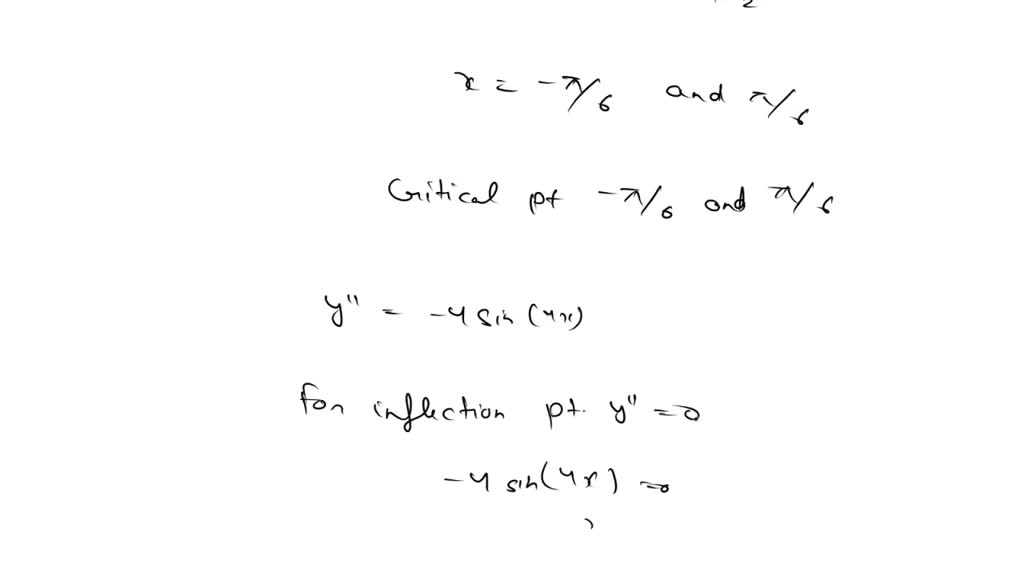 2
x = -π/6 and π/6
Critical pt -π/6 and π/6
y" = -4 sin (4x)
for inflection pt. y" = 0
-4 sin(4x) = 0